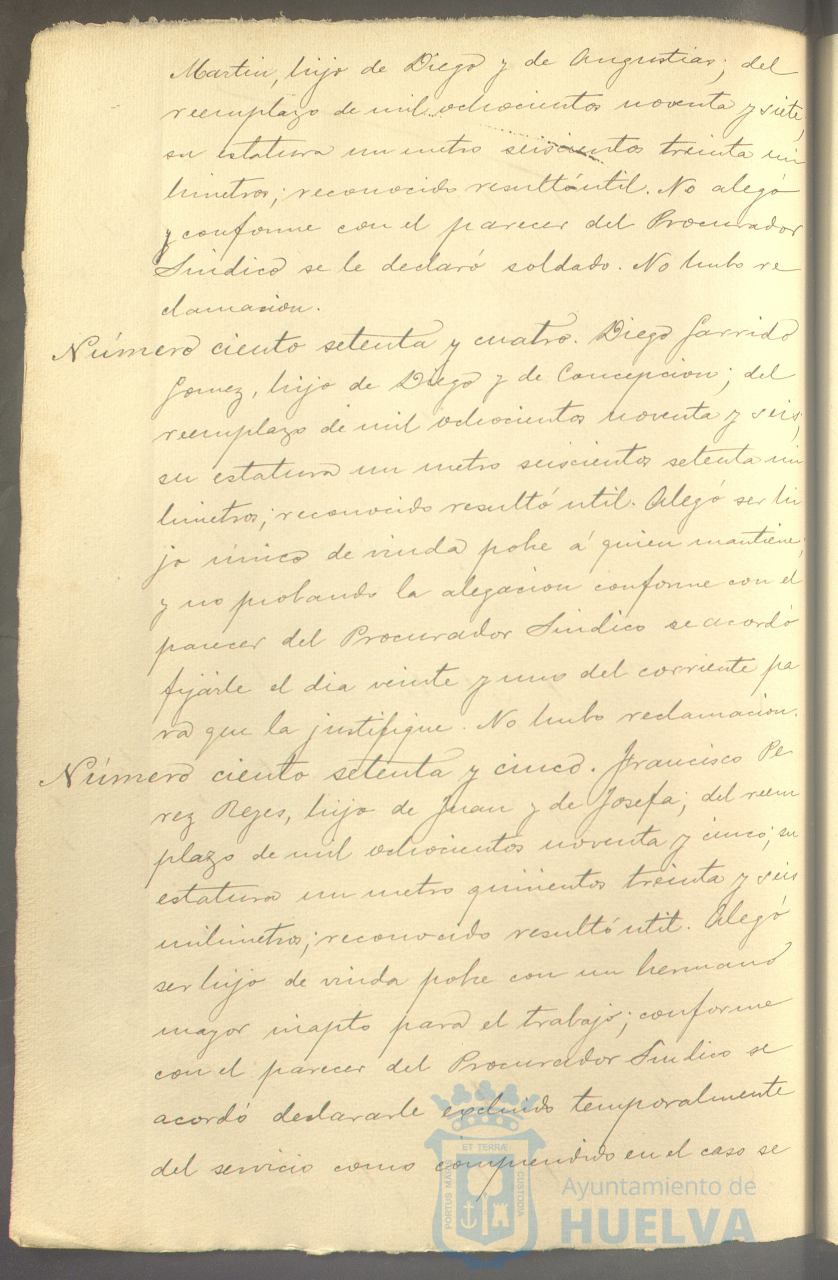 Martin, hijo de Diego y de Angustias; del
reemplazo de mil ochocientos noventa y siete,
su estatura un metro seiscientos treinta mi
limetros; reconocido resultó util. No alegó
y conforme con el parecer del Procurador
Sindico se le declaró soldado. No hubo re
clamacion.
Número ciento setenta y cuatro. Diego Garrido
Gomez, hijo de Diego y de Concepcion; del
reemplazo de mil ochocientos noventa y seis,
su estatura un metro seiscientos setenta mi
limetros; reconocido resultó util. Alegó ser hi
jo único de viuda pobre á quien mantiene;
y no probando la alegacion conforme con el
parecer del Procurador Sindico se acordó
fijarle el dia veinte y uno del corriente pa
ra que la justifique. No hubo reclamacion.
Número ciento setenta y cinco. Francisco Pe
rez Reyes, hijo de Juan y de Josefa; del reem
plazo de mil ochocientos noventa y cinco; su
estatura un metro quinientos treinta y seis
milimetros; reconocido resultó util. Alegó
ser hijo de viuda pobre con un hermano
mayor inapto para el trabajo; conforme
con el parecer del Procurador Sindico se
acordó declararle excluido temporalmente
del servicio como comprendido en el caso se
ET TERRÆ
PORTUS MARIS
CUSTODIA
Ayuntamiento de
HUELVA